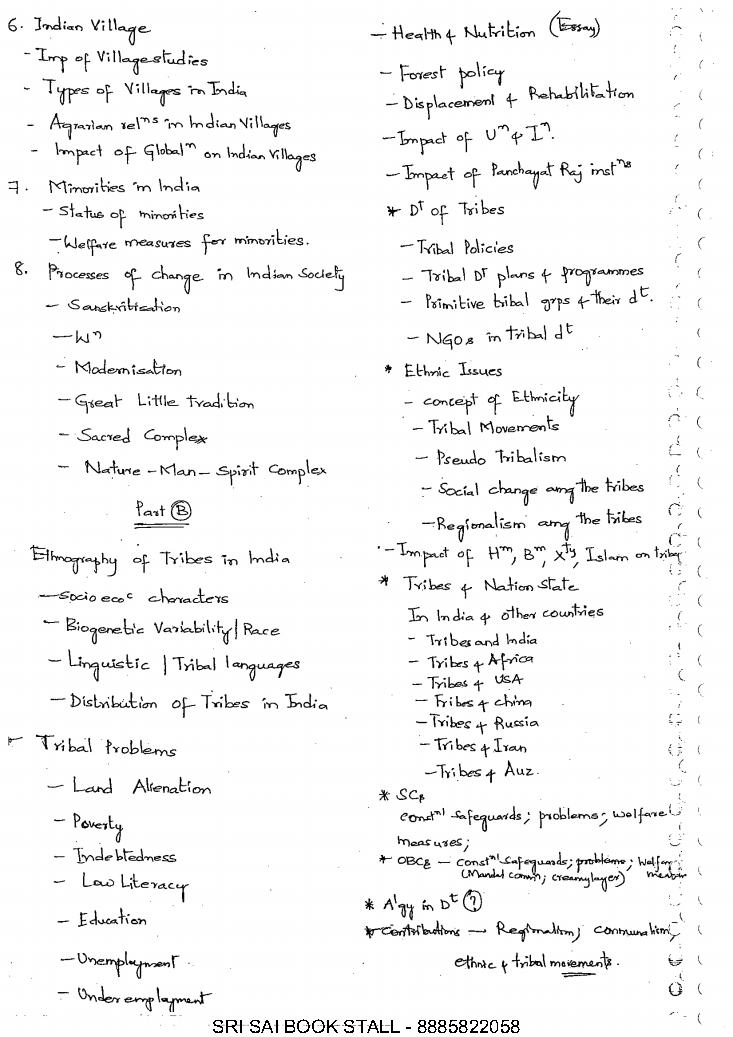 6. Indian Village
- Imp of Village studies
- Types of Villages in India
- Agrarian relns in Indian Villages
- Impact of Globaln on Indian Villages
7. Minorities in India
- Status of minorities
- Welfare measures for minorities.
8. Processes of change in Indian Society
- Sanskritisation
- Wn
- Modernisation
- Great Little tradition
- Sacred Complex
- Nature - Man - Spirit Complex
Part B
Ethnography of Tribes in India
- Socio ecoc characters
- Biogenetic Variability / Race
- Linguistic / Tribal languages
- Distribution of Tribes in India
Tribal Problems
- Land Alienation
- Poverty
- Indebtedness
- Low Literacy
- Education
- Unemployment
- Under employment
- Health & Nutrition (Essay)
- Forest policy
- Displacement & Rehabilitation
- Impact of Un & In.
- Impact of Panchayat Raj instns
* Dt of Tribes
- Tribal Policies
- Tribal Dt plans & programmes
- Primitive tribal grps & their dt.
- NGOs in tribal dt
* Ethnic Issues
- concept of Ethnicity
- Tribal Movements
- Pseudo Tribalism
- Social change amg the tribes
- Regionalism amg the tribes
- Impact of Hm, Bm, Xty, Islam on tribes
* Tribes & Nation State
In India & other countries
- Tribes and India
- Tribes & Africa
- Tribes & USA
- Tribes & china
- Tribes & Russia
- Tribes & Iran
- Tribes & Auz.
* SCs
constnl safeguards; problems; welfare
measures;
* OBCs - constnl safeguards; problems; welfare
(Mandal commn; creamylayer)
* A'gy in Dt ?
* Contributions - Regionalism, communalism,
ethnic & tribal movements.
SRI SAI BOOK STALL - 8885822058